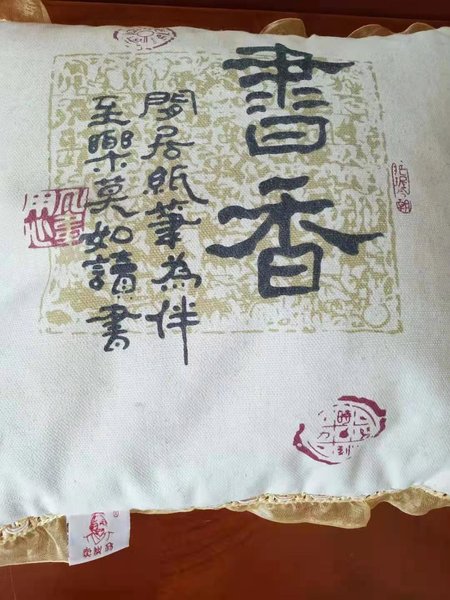 書香
閒居紙筆為伴
至樂莫如讀書